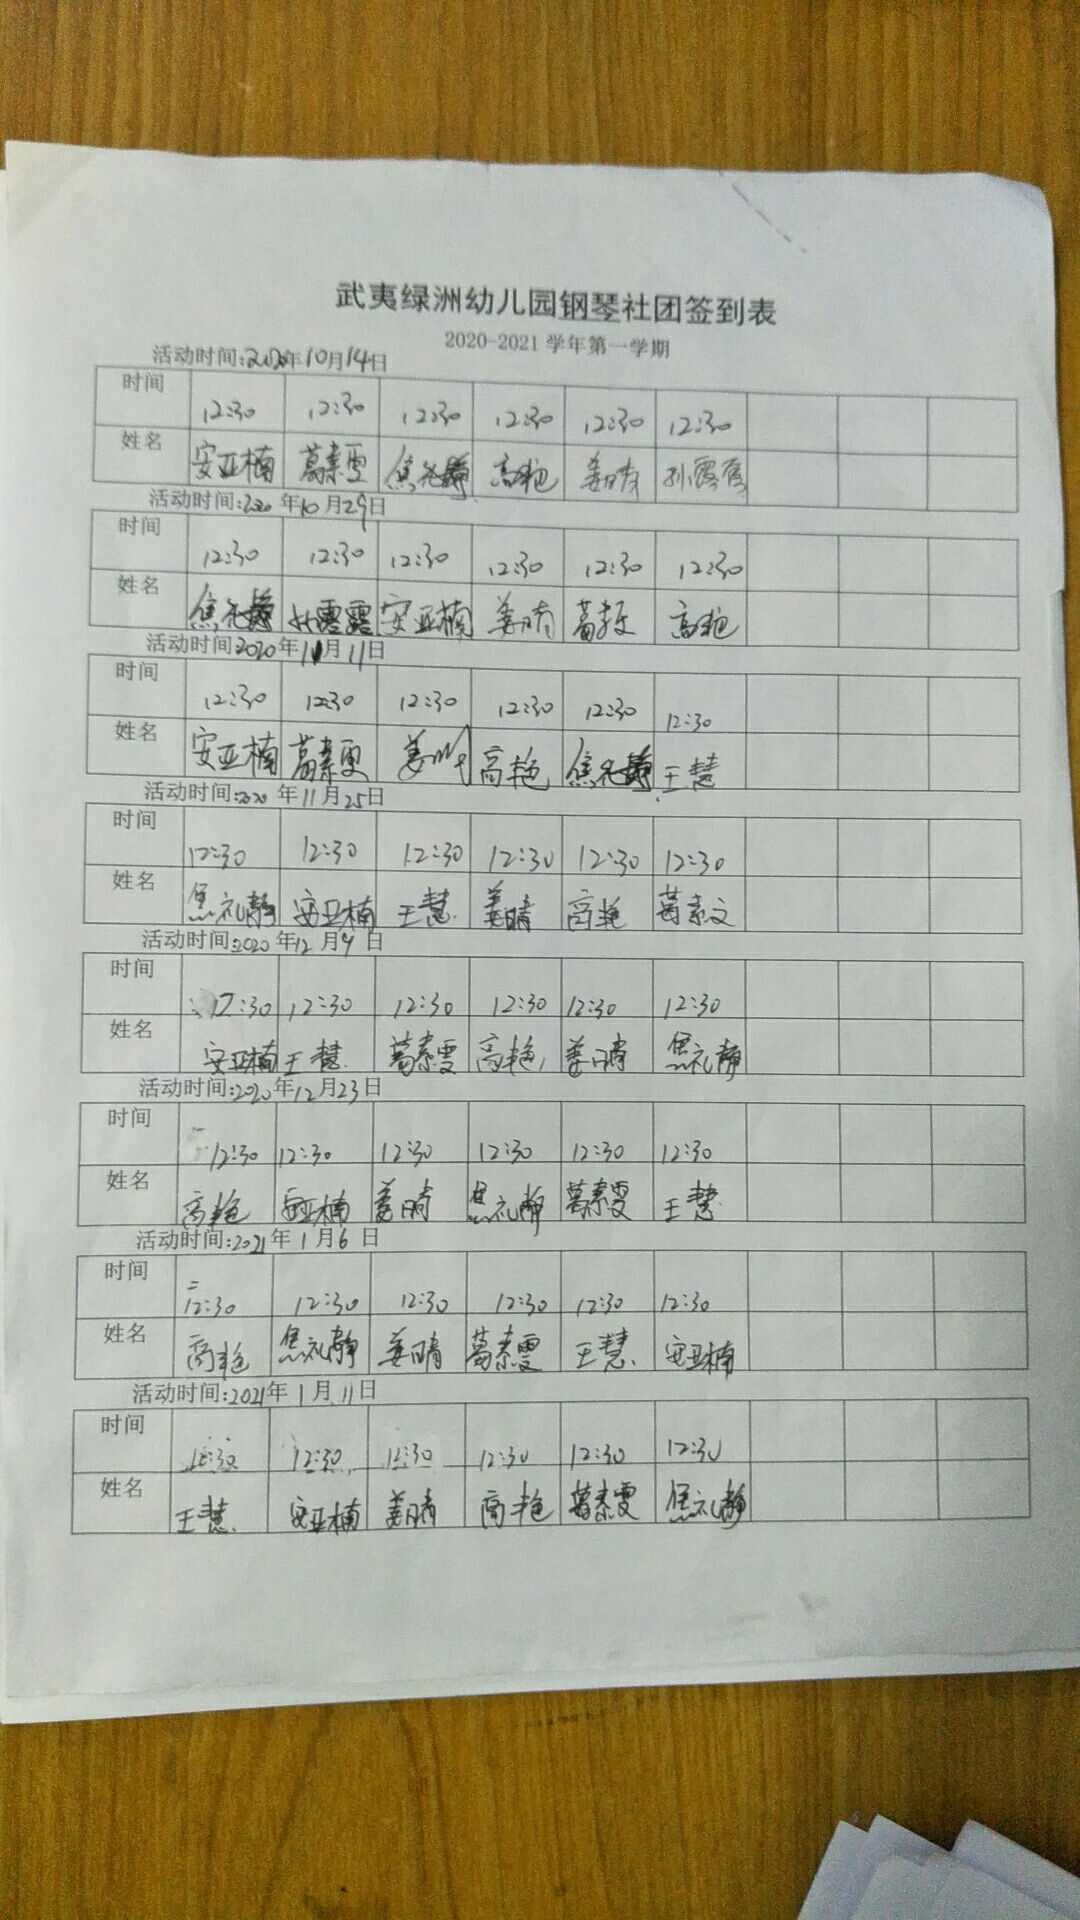 武夷绿洲幼儿园钢琴社团签到表
2020-2021 学年第一学期
活动时间:2020年10月14日
时间 12:30 12:30 12:30 12:30 12:30 12:30
姓名 安亚楠 葛素雯 焦礼静 高艳 姜晴 孙露露
活动时间:2020年10月29日
时间 12:30 12:30 12:30 12:30 12:30 12:30
姓名 焦礼静 孙露露 安亚楠 姜晴 葛素文 高艳
活动时间2020年11月11日
时间 12:30 12:30 12:30 12:30 12:30 12:30
姓名 安亚楠 葛素雯 姜晴 高艳 焦礼静 王慧
活动时间:2020年11月25日
时间 12:30 12:30 12:30 12:30 12:30 12:30
姓名 焦礼静 安亚楠 王慧 姜晴 高艳 葛素文
活动时间:2020年12月9日
时间 12:30 12:30 12:30 12:30 12:30 12:30
姓名 安亚楠 王慧 葛素雯 高艳 姜晴 焦礼静
活动时间:2020年12月23日
时间 12:30 12:30 12:30 12:30 12:30 12:30
姓名 高艳 安亚楠 姜晴 焦礼静 葛素雯 王慧
活动时间:2021年1月6日
时间 12:30 12:30 12:30 12:30 12:30 12:30
姓名 高艳 焦礼静 姜晴 葛素雯 王慧 安亚楠
活动时间:2021年1月11日
时间 12:30 12:30 12:30 12:30 12:30 12:30
姓名 王慧 安亚楠 姜晴 高艳 葛素雯 焦礼静